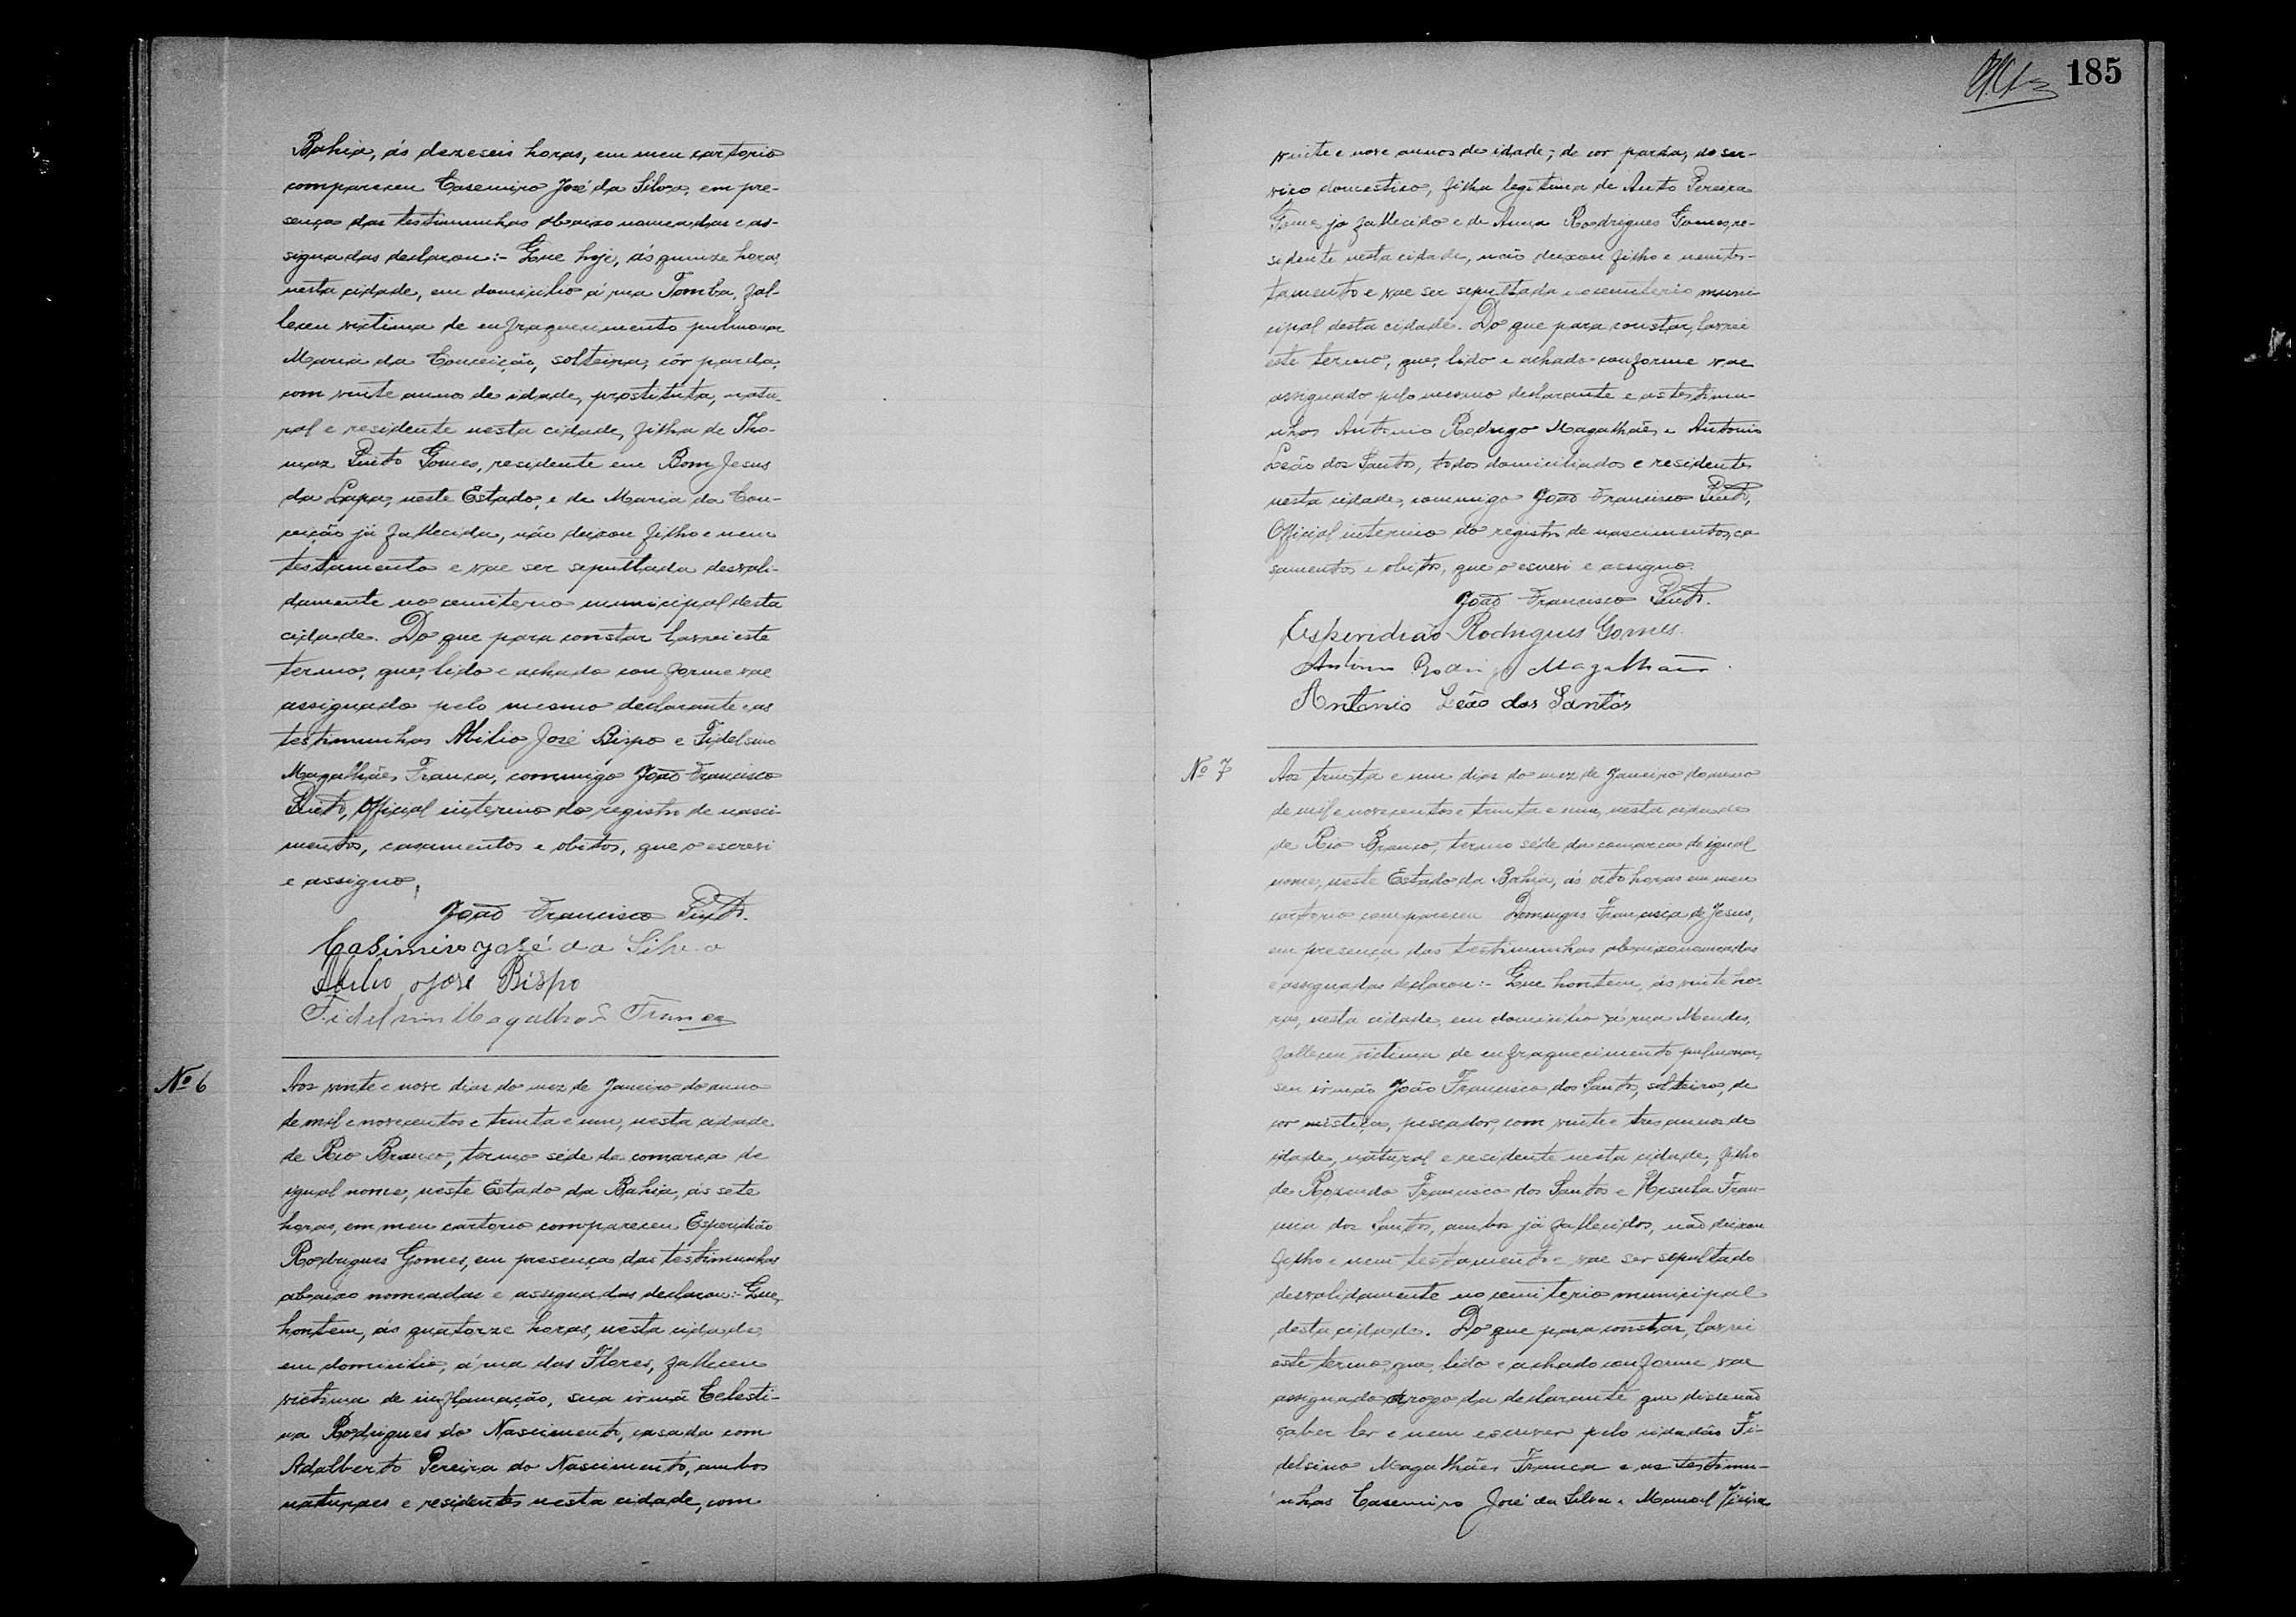 Bahia, ás dezeseis horas, em meu cartorio
compareceu Casemiro José da Silva, em pre-
sença das testimunhas abaixo nomeadas e as-
signadas declarou:- Que hoje, ás quinze horas,
nesta cidade, em domicilio á rua Tomba, fal-
leceu victima de enfraquecimento pulmonar
Maria da Conceição, solteira, côr parda,
com vinte annos de idade, prostituta, natu-
ral e residente nesta cidade, filha de Tho-
maz Pinto Gomes, residente em Bom Jesus
da Lapa, neste Estado, e de Maria da Con-
ceição já fallecida, não deixou filho e nem
testamento e vae ser sepultada desvali-
damente no cemiterio municipal desta
cidade. Do que para constar lavrei este
termo, que, lido e achado conforme vae
assignado pelo mesmo declarante e as
testimunhas Abilio José Bispo e Fidelsino
Magalhães Franca, commigo João Francisco
Pinto, Official interino do registro de nasci-
mentos, casamentos e obitos, que o escrevi
e assigno.
João Francisco Pinto.
Casimiro José da Silva
Abilio José Bispo
Fidelsino Magalhães Franca
Nº 6
Aos vinte e nove dias do mez de Janeiro do anno
de mil e novecentos e trinta e um, nesta cidade
de Rio Branco, termo séde da comarca de
igual nome, neste Estado da Bahia, ás sete
horas, em meu cartorio compareceu Esperidião
Rodrigues Gomes, em presença das testimunhas
abaixo nomeadas e assignadas declarou:- Que,
hontem, ás quatorze horas, nesta cidade,
em domicilio, á rua das Flores, falleceu
victima de inflamação, sua irmã Celesti-
na Rodrigues do Nascimento, casada com
Adalberto Pereira do Nascimento, ambos
naturaes e residentes nesta cidade, com
185
vinte e nove annos de idade, de cor parda, do ser-
viço domestico, filha legitima de Anto Pereira
Gome já fallecido e de Anna Rodrigues Gomes, re-
sidente nesta cidade, não deixou filho e nem tes-
tamento e vae ser sepultada no cemiterio muni-
cipal desta cidade. Do que para constar, lavrei
este termo, que, lido e achado conforme vae
assignado pelo mesmo declarante e as testimu-
nhas Antonio Rodrigo Magalhães e Antonio
Leão dos Santos, todos domiciliados e residentes
nesta cidade, commigo João Francisco Pinto,
Official interino do registro de nascimentos, ca-
samentos e obitos, que o escrevi e assigno.
João Francisco Pinto.
Esperidião Rodrigues Gomes.
Antonio Rodrigo Magalhães.
Antonio Leão dos Santos
Nº 7
Aos trinta e um dias do mez de Janeiro do anno
de mil e novecentos e trinta e um, nesta cidade
de Rio Branco, termo séde da comarca de igual
nome, neste Estado da Bahia, ás oito horas em meu
cartorio compareceu Domingas Francisca de Jesus,
em presença das testimunhas abaixo nomeadas
e assignadas declarou:- Que hontem, ás vinte ho-
ras, nesta cidade, em domicilio á rua Mendes,
falleceu victima de enfraquecimento pulmonar,
seu irmão João Francisco dos Santos, solteiro, de
cor mestiça, pescador, com vinte e tres annos de
idade, natural e residente nesta cidade, filho
de Rosendo Francisco dos Santos e Ursula Fran-
cisca dos Santos, ambos já fallecidos, não deixou
filho e nem testamento e vae ser sepultado
desvalidamente no cemiterio municipal
desta cidade. Do que para constar, lavrei
este termo, que, lido e achado conforme vae
assignado a rogo da declarante que disse não
saber ler e nem escrever pelo cidadão Fi-
delsino Magalhães Franca e as testimu-
nhas Casemiro José da Silva e Manoel Vieira